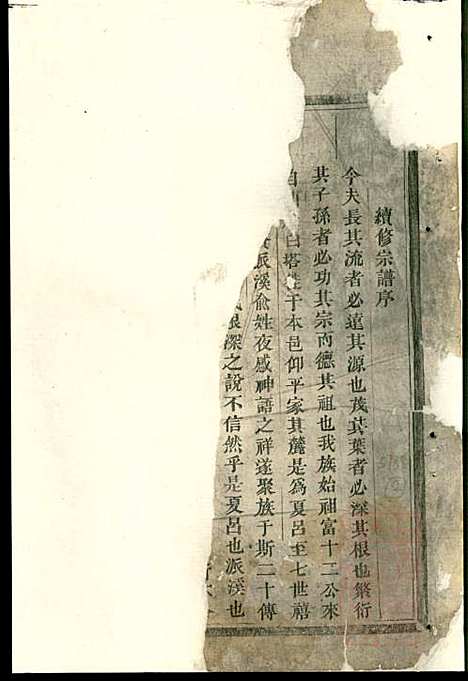 續修宗譜序
今夫長其流者必遠其源也茂其葉者必深其根也繁衍
其子孫者必功其宗而德其祖也我族始祖富十二公來
自 白塔 于本邑仰平家其麓是爲夏呂至七世禧
派溪俞姓夜感神語之祥遂聚族于斯二十傳
根深之說不信然乎是夏呂也派溪也